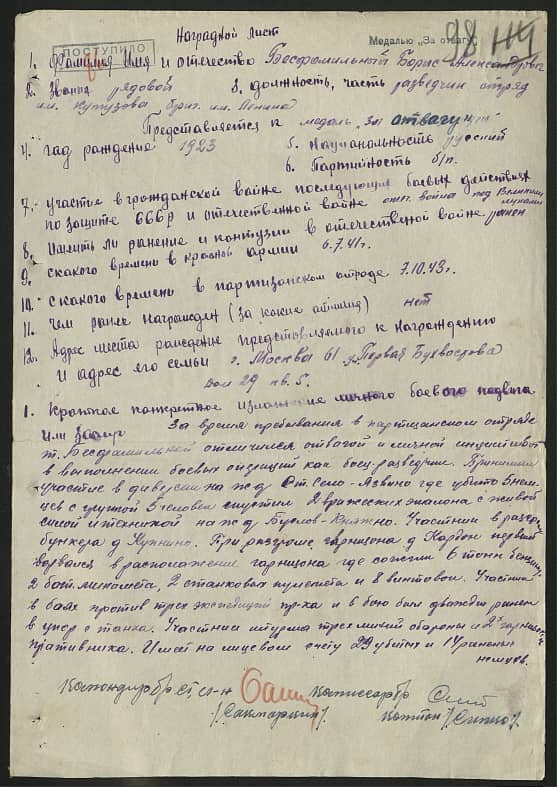 Наградной лист
ПОСТУПИЛО
Медалью „За отвагу"
28
1. Фамилия Имя и отчество Бесфамильный Борис Александрович
2. Звание рядовой 3. должность, часть разведчик отряд
им. Кутузова бриг. им. Ленина
Представляется к медаль „за отвагу"
4. год рождения 1923 5. Национальность русский
6. Партийность б/п.
7. участие в гражданской войне последующих боевых действиях
по защите СССР и отечественной войне отеч. война под Великими луками
8. Имеить ли ранение и контузии в отечественой войне ранен
9. с какого времени в красной армии 6.7.41г.
10. с какого времени в партизанском отряде 7.10.43г.
11. Чем ранее награжден (за какие отличия) нет
12. Адрес места рождение представляемого к награждению
и адрес его семьи г. Москва 61 Первая Бухвостова
дом 29 кв. 5.
1. Краткое конкретное изложение личного боевого подвига
или За время пребывания в партизанском отряде
т. Бесфамильной отличился отвагой и личной
в выполнении боевых операций как боец-разведчик. Принимал
участие в диверсии на ж.д. Ст. Село-Язвино где убито 3 нем-
цев с группой 5 человек спустил 2 вражеских эшалона с живой
силой и техникой на ж.д. Княжно. Участник в
бункера д. При разгроме гарнизона д. первый
ворвался в расположение гарнизона где сожгли 6 тонн бензину
2 бат. миномета, 2 станковых пулемета и 8 винтовок. Участник
в боях против трех экспедиций пр-ка и в бою был дважды ранен
в упор с танка. Участник штурма трех линий обороны и 2х гарнизон
пративника. Имеет на лицевом счету 29 убитых и 14 раненых
немцев.
Командир бр. ст. л-н Комиссар бр.
/Сакмаркин/ капитан /Сипко/